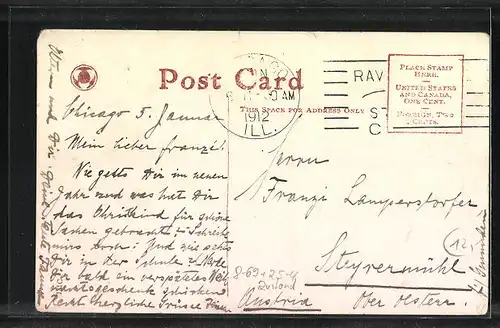 Post Card
THIS SPACE FOR ADDRESS ONLY
PLACE STAMP
HERE.
UNITED STATES
AND CANADA,
ONE CENT.
FOREIGN, TWO
CENTS.
1912
ILL.
RAV
Chicago 5. Januar
Mein lieber Franzi!
Wie gehts Dir im neuen
Jahr und was hat Dir
das Christkind für schöne
Sachen gebracht? Schreibe
mir doch! Und wie gehts
Dir in der Schule? Werde
Dir bald ein verspätetes Weih
nachtsgeschenk schicken
Recht herzliche Grüsse
Herrn
Franzi Lamperstorfer
Steyrermühl
Ober Oesterr.
Austria
b/ Gmunden